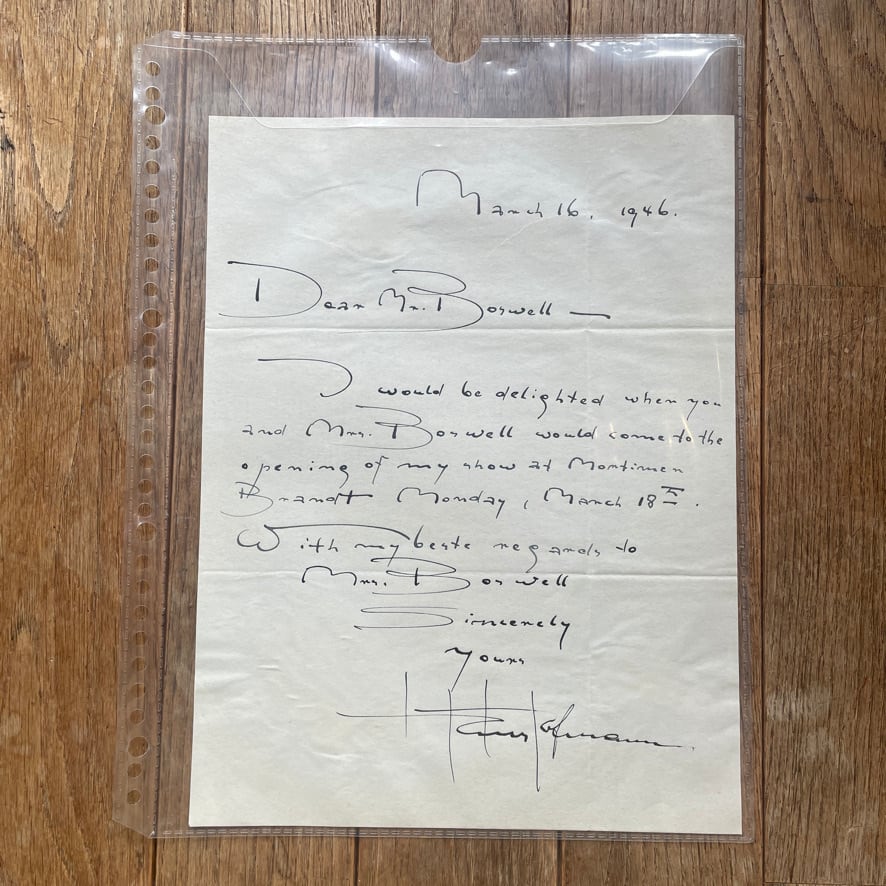 March 16, 1946.
Dear Mr. Boswell —
I would be delighted when you
and Mrs. Boswell would come to the
opening of my show at Mortimer
Brandt Monday, March 18th.
With my beste regards to
Mrs. Boswell
Sincerely
Yours
Hans Hofmann